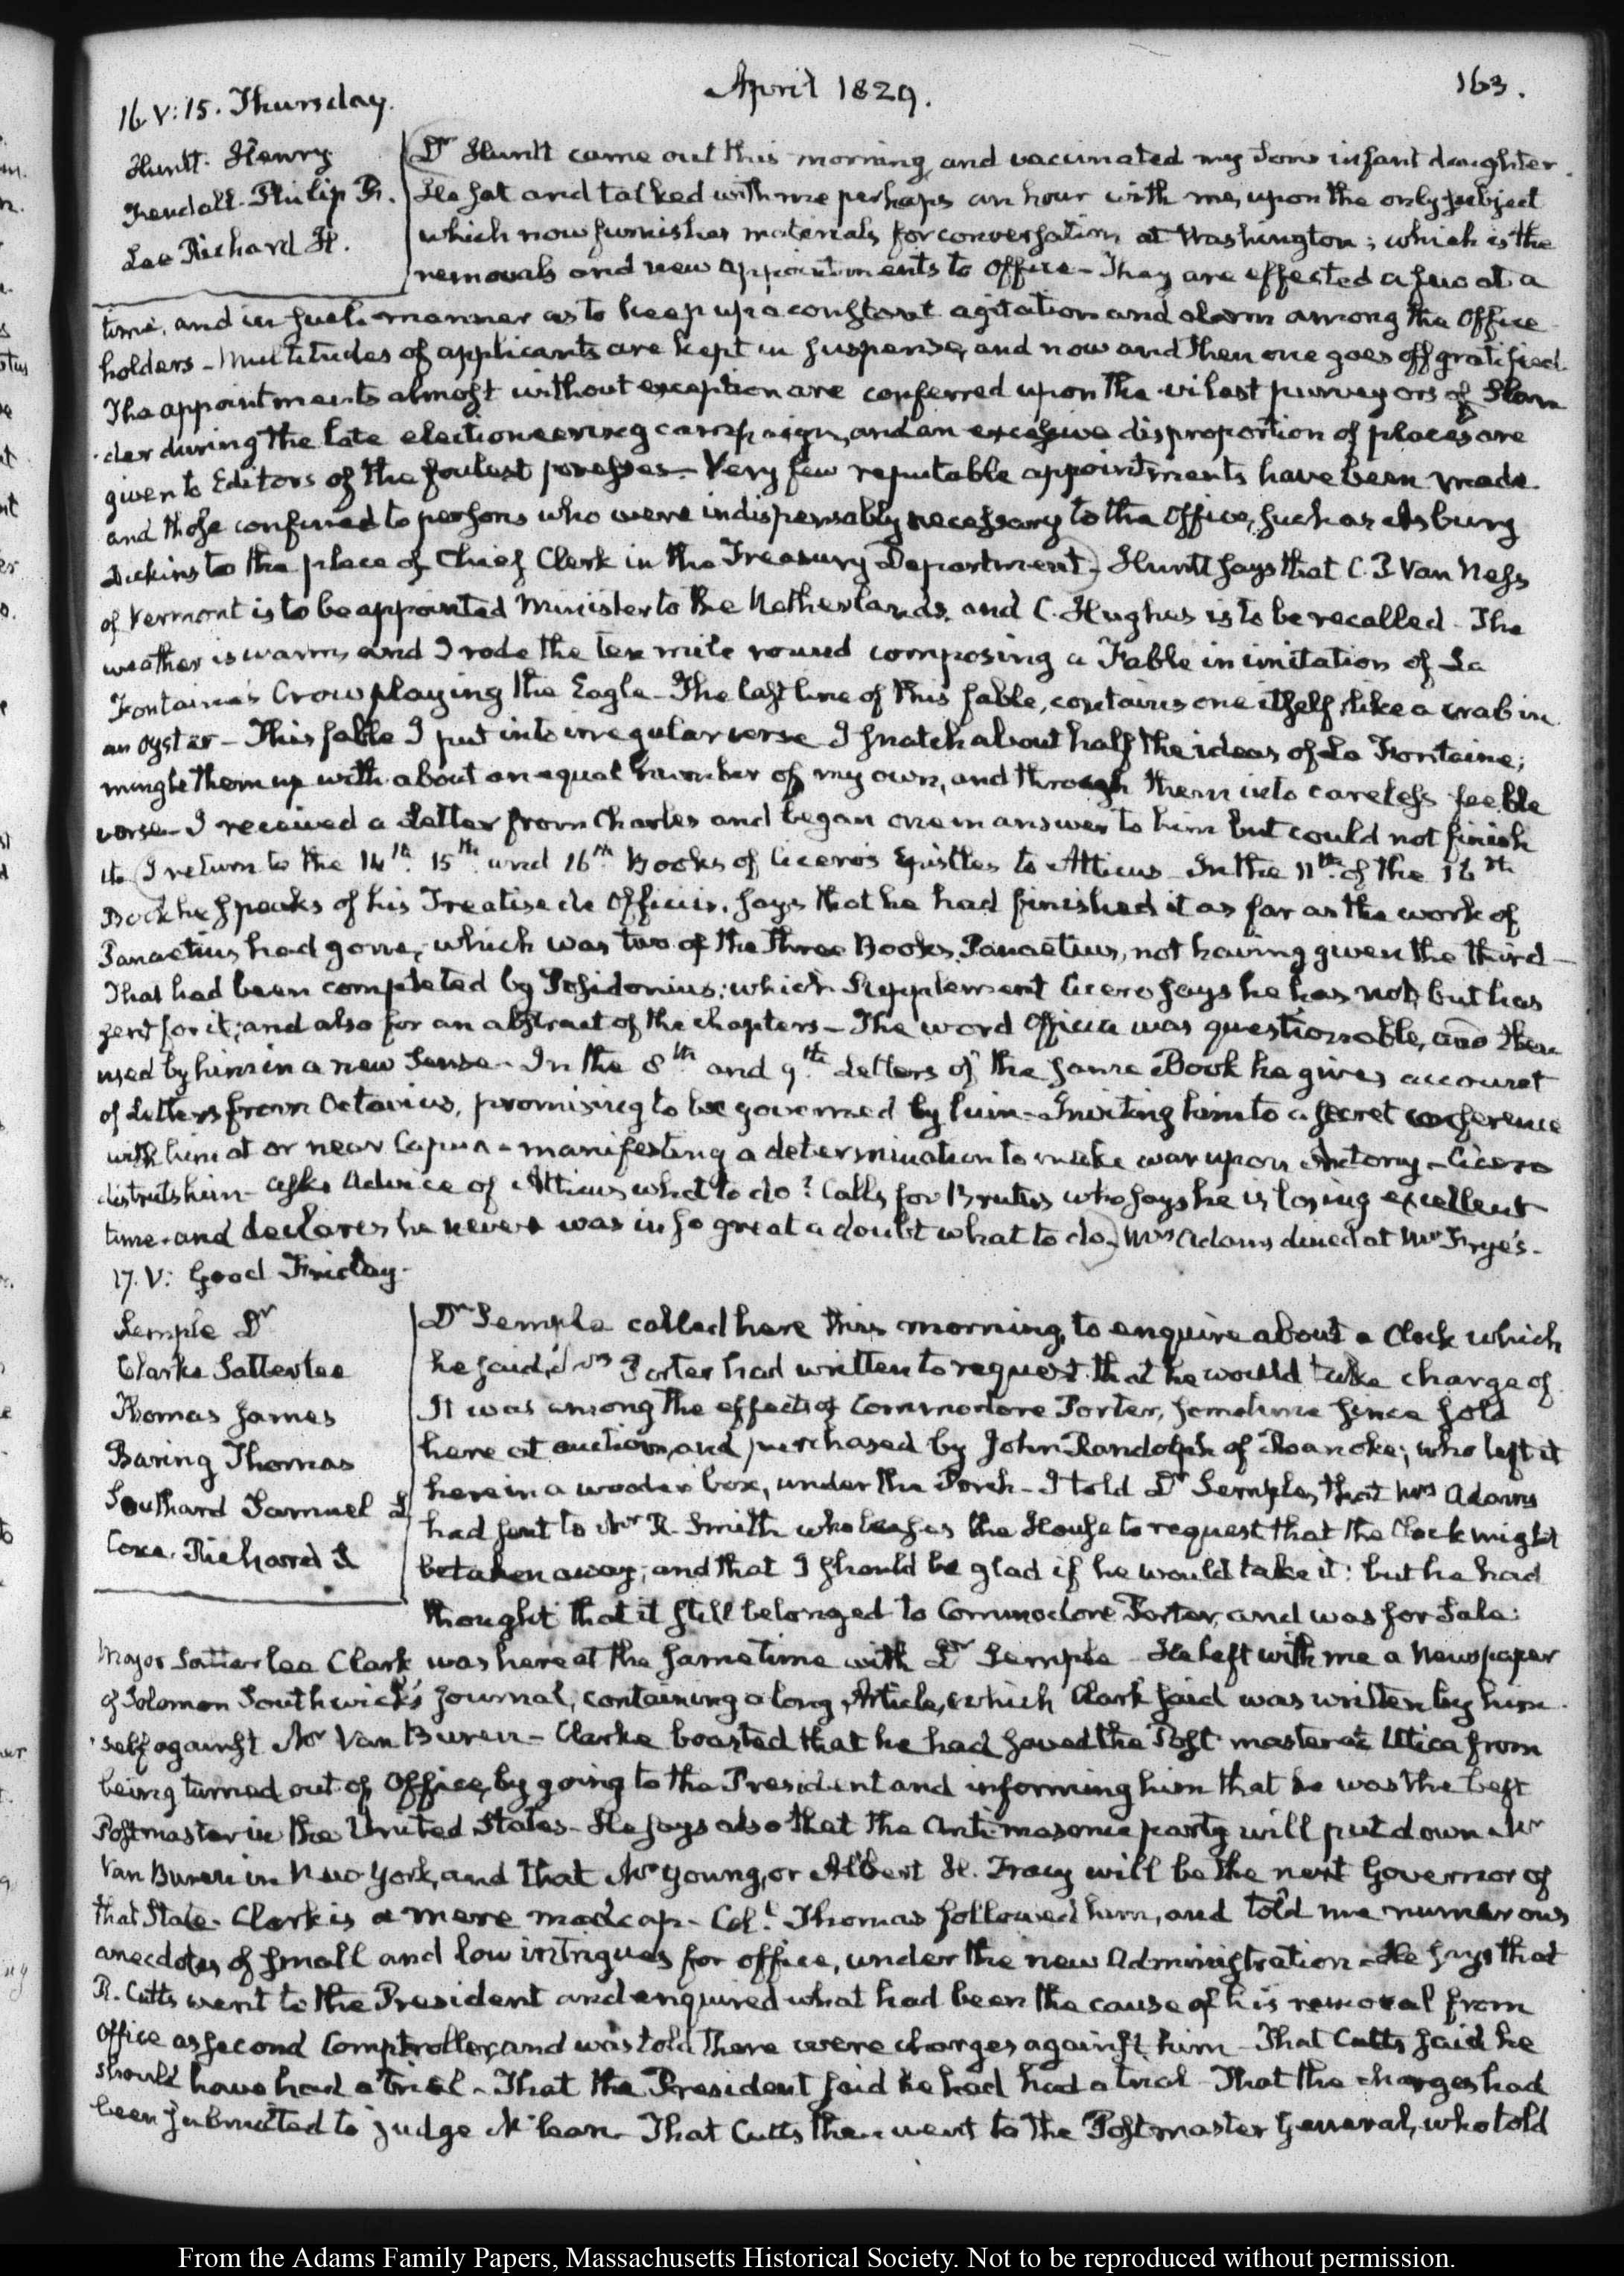 April 1829.
163.
16. V:15. Thursday.
Huntt. Henry
Fendall. Philip R.
Lee Richard H.
Dr Huntt came out this morning, and vaccinated my Sons infant daughter.
He sat and talked with me perhaps an hour with me, upon the only subject
which now furnishes materials for conversation at Washington; which is the
removals and new appointments to Office - They are effected a few at a
time, and in such manner as to keep up a constant agitation and alarm among the Office
holders - Multitudes of applicants are kept in suspense, and now and then one goes off gratified.
The appointments almost without exception are conferred upon the vilest purveyors of Slan
der during the late electioneering campaign, and an excessive disproportion of places are
given to Editors of the foulest presses - Very few reputable appointments have been made.
and those confined to persons who were indispensably necessary to the Office, such as Asbury
Dickins to the place of Chief Clerk in the Treasury Department - Huntt says that C. P. Van Ness
of Vermont is to be appointed Minister to the Netherlands, and C. Hughes is to be recalled - The
weather is warm, and I rode the ten mile round composing a Fable in imitation of La
Fontaine's Crow playing the Eagle - The last line of this fable, contains one itself, like a crab in
an oyster - This fable I put into irregular verse I snatch about half the ideas of La Fontaine;
mingle them up with about an equal number of my own, and through them into careless feeble
verse - I received a Letter from Charles and began one in answer to him but could not finish
it. I return to the 14th 15th and 16th Books of Cicero's Epistles to Atticus - In the 11th of the 16th
Book he speaks of his Treatise de Officiis, says that he had finished it as far as the work of
Panaetius had gone, which was two of the three Books. Panaetius, not having given the third -
That had been completed by Posidonius: which Supplement Cicero says he has not, but has
sent for it; and also for an abstract of the chapters - The word Officia was questionable, and then
used by him in a new Sense - In the 8th and 9th Letters of the same Book he gives account
of Letters from Octavius, promising to be governed by him - Inviting him to a secret conference
with him at or near Capua - manifesting a determination to make war upon Antony - Cicero
distrusts him - asks Advice of Atticus what to do? Calls for Brutus who says he is losing excellent
time - and declares he never was in so great a doubt what to do - Mrs Adams dined at Mr Frye's -
17. V: Good Friday.
Semple Dr
Clarke Satterlee
Thomas James
Baring Thomas
Southard Samuel L
Coxe. Richard S
Dr Semple called here this morning, to enquire about a Clock which
he said, Mrs Porter had written to request that he would take charge of
It was among the effects of Commodore Porter, sometime since sold
here at auction, and purchased by John Randolph of Roanoke; who left it
here in a wooden box, under the Porch - I told Dr Semple, that Mrs Adams
had sent to Mr R. Smith who leases the House to request that the Clock might
be taken away; and that I should be glad if he would take it: but he had
thought that it still belonged to Commodore Porter, and was for Sale:
Major Satterlee Clark was here at the same time with Dr Semple - He left with me a Newspaper
of Solomon Southwick's Journal, containing a long Article, which Clark said was written by him
self against Mr Van Buren - Clarke boasted that he had saved the Post master at Utica from
being turned out of Office, by going to the President and informing him that he was the best
Postmaster in the United States - He says also that the Antimasonic party will put down Mr
Van Buren in New York, and that Mr Young, or Albert H. Tracy will be the next Governor of
that State. Clark is a mere madcap - Coll. Thomas followed him, and told me numerous
anecdotes of small and low intrigues for office, under the new Administration - He says that
R. Cutts went to the President and enquired what had been the cause of his removal from
Office as second Comptroller, and was told there were charges against him - That Cutts said he
should have had a trial - That the President said he had had a trial - That the charges had
been submitted to judge McLean - That Cutts then went to the Postmaster General, who told
From the Adams Family Papers, Massachusetts Historical Society. Not to be reproduced without permission.